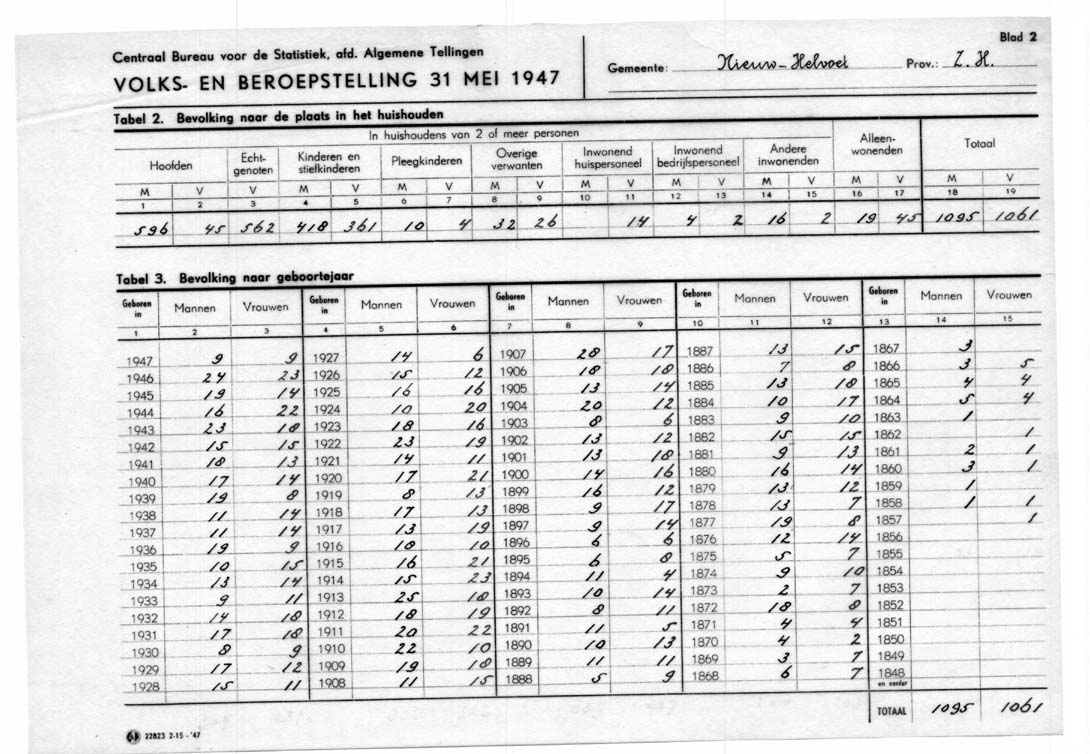 Blad 2
Centraal Bureau voor de Statistiek, afd. Algemene Tellingen
VOLKS- EN BEROEPSTELLING 31 MEI 1947
Gemeente: Nieuw-Helvoet Prov.: Z.H.
Tabel 2. Bevolking naar de plaats in het huishouden
In huishoudens van 2 of meer personen Alleen-wonenden Totaal
Hoofden Echt-genoten Kinderen en stiefkinderen Pleegkinderen Overige verwanten Inwonend huispersoneel Inwonend bedrijfspersoneel Andere inwonenden
M V V M V M V M V M V M V M V M V M V
1 2 3 4 5 6 7 8 9 10 11 12 13 14 15 16 17 18 19
596 45 562 418 361 10 4 32 26 14 4 2 16 2 19 45 1095 1061
Tabel 3. Bevolking naar geboortejaar
Geboren in Mannen Vrouwen Geboren in Mannen Vrouwen Geboren in Mannen Vrouwen Geboren in Mannen Vrouwen Geboren in Mannen Vrouwen
1 2 3 4 5 6 7 8 9 10 11 12 13 14 15
1947 9 9 1927 14 6 1907 28 17 1887 13 15 1867 3
1946 24 23 1926 15 12 1906 18 18 1886 7 8 1866 3 5
1945 19 14 1925 16 16 1905 13 14 1885 13 18 1865 4 4
1944 16 22 1924 10 20 1904 20 12 1884 10 17 1864 5 4
1943 23 18 1923 18 16 1903 8 6 1883 9 10 1863 1
1942 15 15 1922 23 19 1902 13 12 1882 15 15 1862 1
1941 18 13 1921 14 11 1901 13 18 1881 9 13 1861 2 1
1940 17 14 1920 17 21 1900 14 16 1880 16 14 1860 3 1
1939 19 8 1919 8 13 1899 16 12 1879 13 12 1859 1
1938 11 14 1918 17 13 1898 9 17 1878 13 7 1858 1 1
1937 11 14 1917 13 19 1897 9 14 1877 19 8 1857 1
1936 19 9 1916 18 10 1896 6 6 1876 12 14 1856
1935 10 15 1915 16 21 1895 6 8 1875 5 7 1855
1934 13 14 1914 15 23 1894 11 4 1874 9 10 1854
1933 9 11 1913 25 18 1893 10 14 1873 2 7 1853
1932 14 18 1912 18 19 1892 8 11 1872 18 8 1852
1931 17 18 1911 20 22 1891 11 5 1871 4 4 1851
1930 8 9 1910 22 10 1890 10 13 1870 4 2 1850
1929 17 12 1909 19 18 1889 11 11 1869 3 7 1849
1928 15 11 1908 11 15 1888 5 9 1868 6 7 1848 en eerder
TOTAAL 1095 1061
22823 2-15-'47